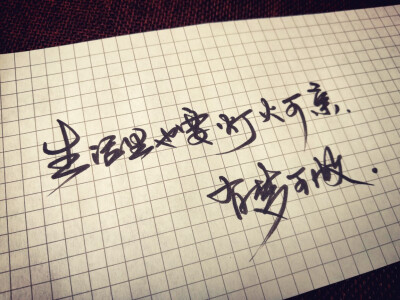 生活里也要灯火可亲.
有梦可做.